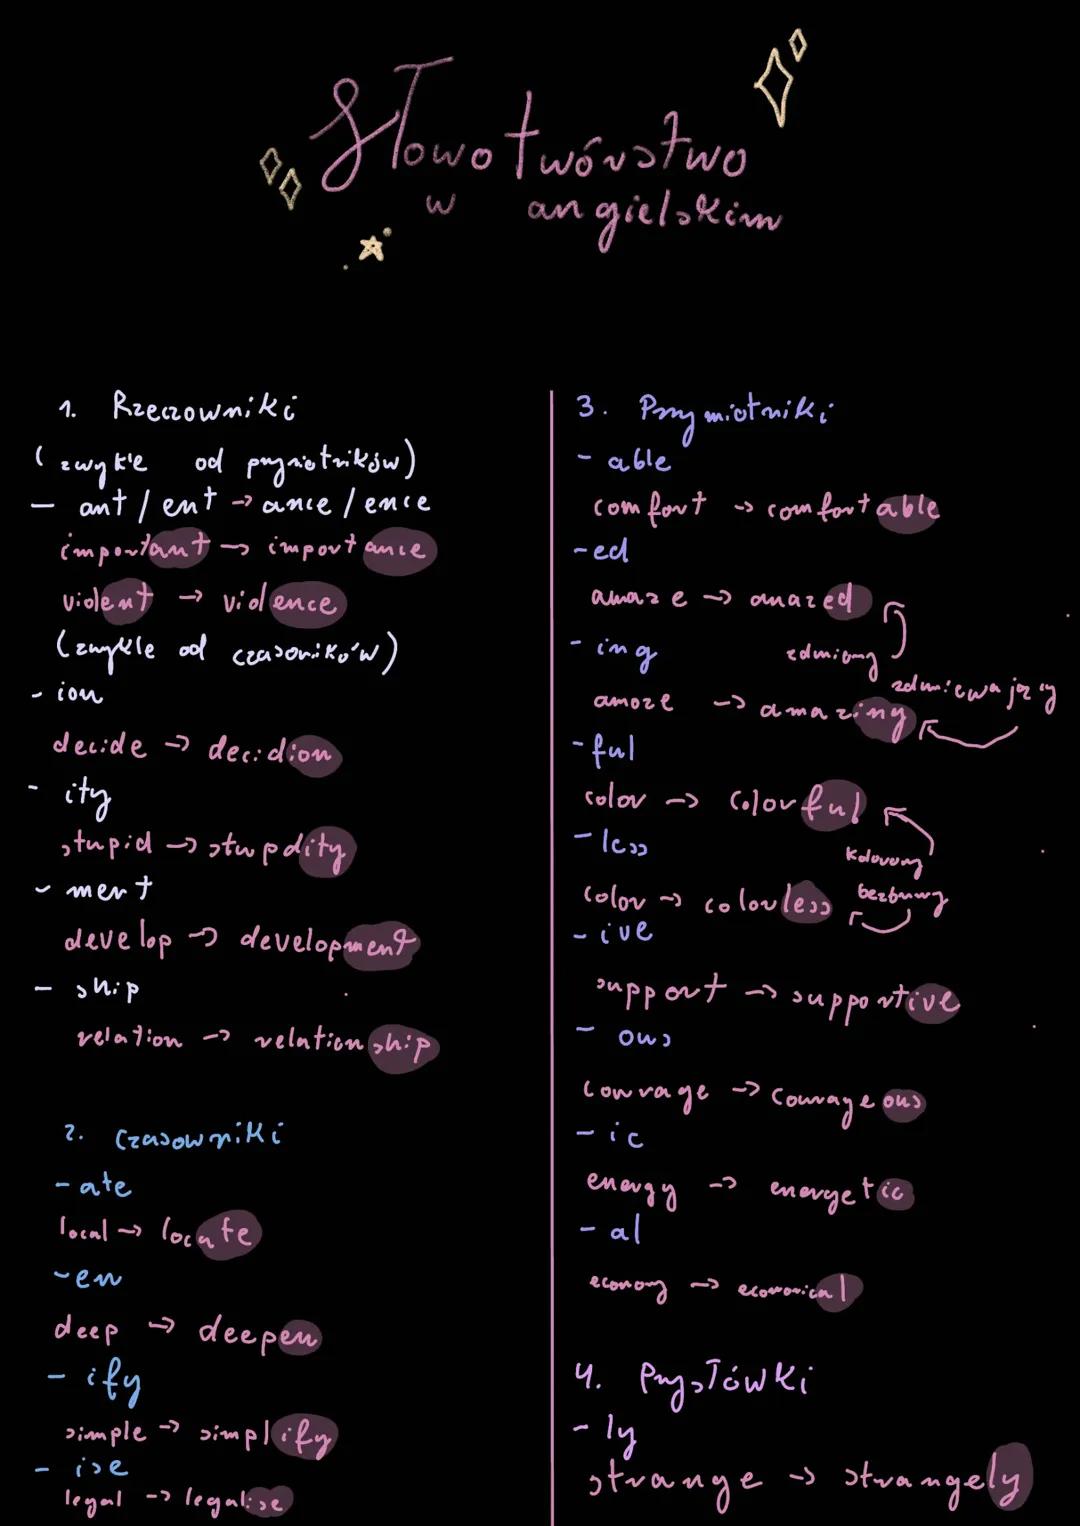 Słowotwórstwo
w angielskim
1. Rzeczowniki
(zwykle od przymiotników)
- ant / ent -> ance / ence
important -> importance
violent -> violence
(zwykle od czasowników)
- ion
decide -> decidion
- ity
stupid -> stupdity
- ment
develop -> development
- ship
relation -> relationship
2. Czasowniki
- ate
local -> locate
- en
deep -> deepen
- ify
simple -> simplify
- ise
legal -> legalise
3. Przymiotniki
- able
comfort -> comfortable
- ed
amaze -> amazed
zdmiony
- ing
zdumiewający
amaze -> amazing
- ful
color -> colorful
- less
kolorowy
color -> colorless
bezbarwny
- ive
support -> supportive
- ous
courage -> courageous
- ic
energy -> energetic
- al
economy -> economical
4. Przysłówki
- ly
strange -> strangely